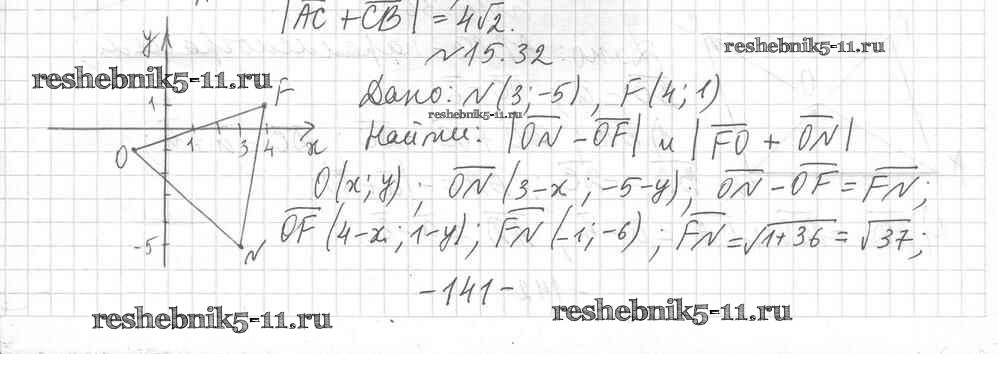 |A̅C̅ + C̅B̅| = 4√2.
№15.32
reshebnik5-11.ru
reshebnik5-11.ru
y
1
F
Дано: N(3;-5), F(4;1)
reshebnik5-11.ru
Найти: |O̅N̅ - O̅F̅| и |F̅O̅ + O̅N̅|
O 1 3 4 x
O(x;y); O̅N̅(3-x; -5-y); O̅N̅ - O̅F̅ = F̅N̅;
O̅F̅(4-x; 1-y); F̅N̅(-1;-6); F̅N̅ = √1+36 = √37;
-5
N
-141-
reshebnik5-11.ru
reshebnik5-11.ru